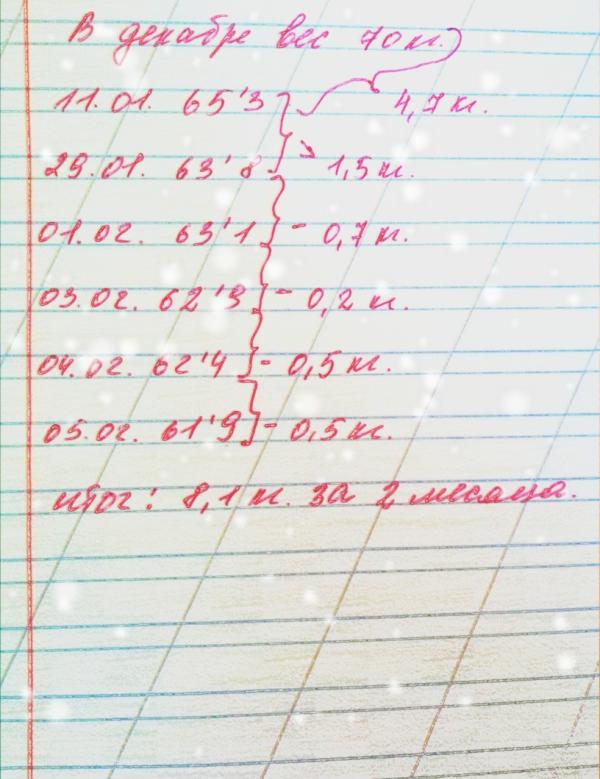 В декабре вес 70 кг.
11.01. 65'3 4,7 кг.
29.01. 63'8 1,5 кг.
01.02. 63'1 - 0,7 кг.
03.02. 62'9 - 0,2 кг.
04.02. 62'4 - 0,5 кг.
05.02. 61'9 - 0,5 кг.
итог: 8,1 кг. за 2 месяца.